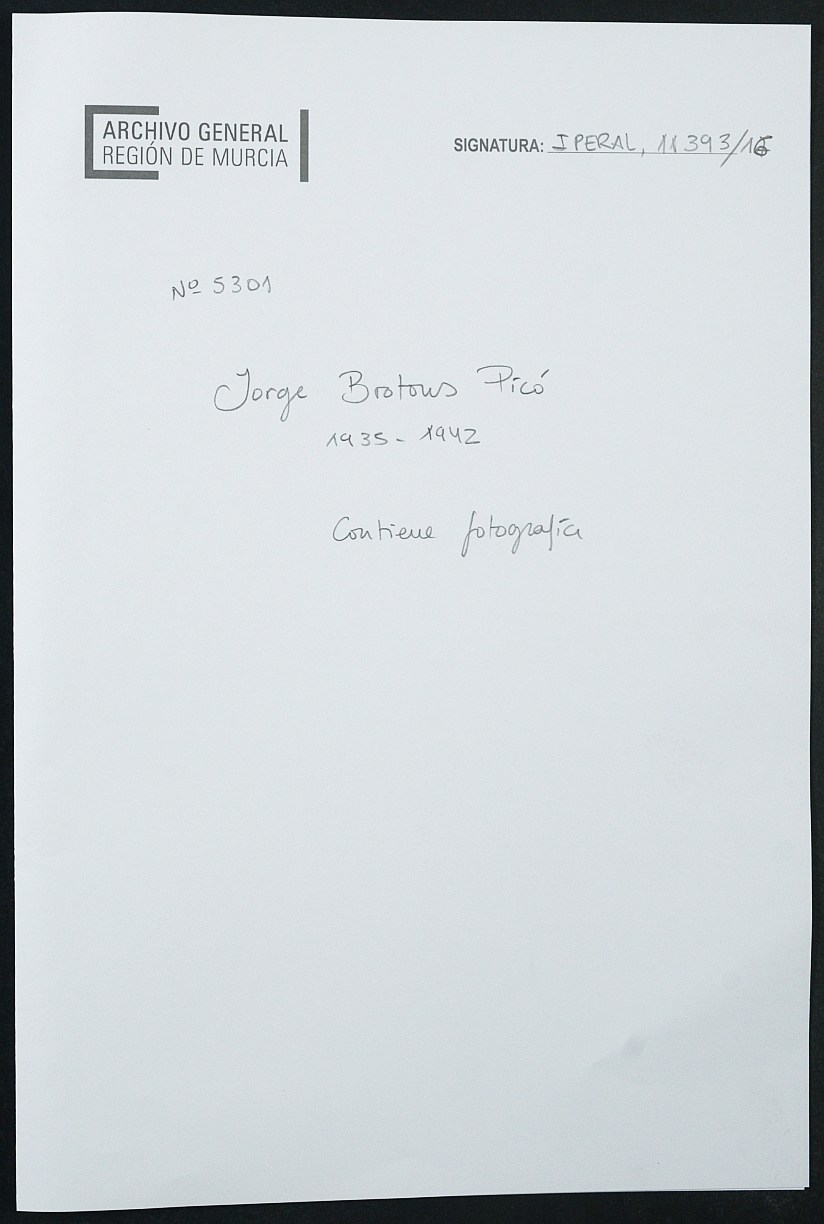 ARCHIVO GENERAL
REGIÓN DE MURCIA
SIGNATURA: IPERAL, 11393/16
Nº 5301
Jorge Brotons Picó
1935 - 1942
Contiene fotografía